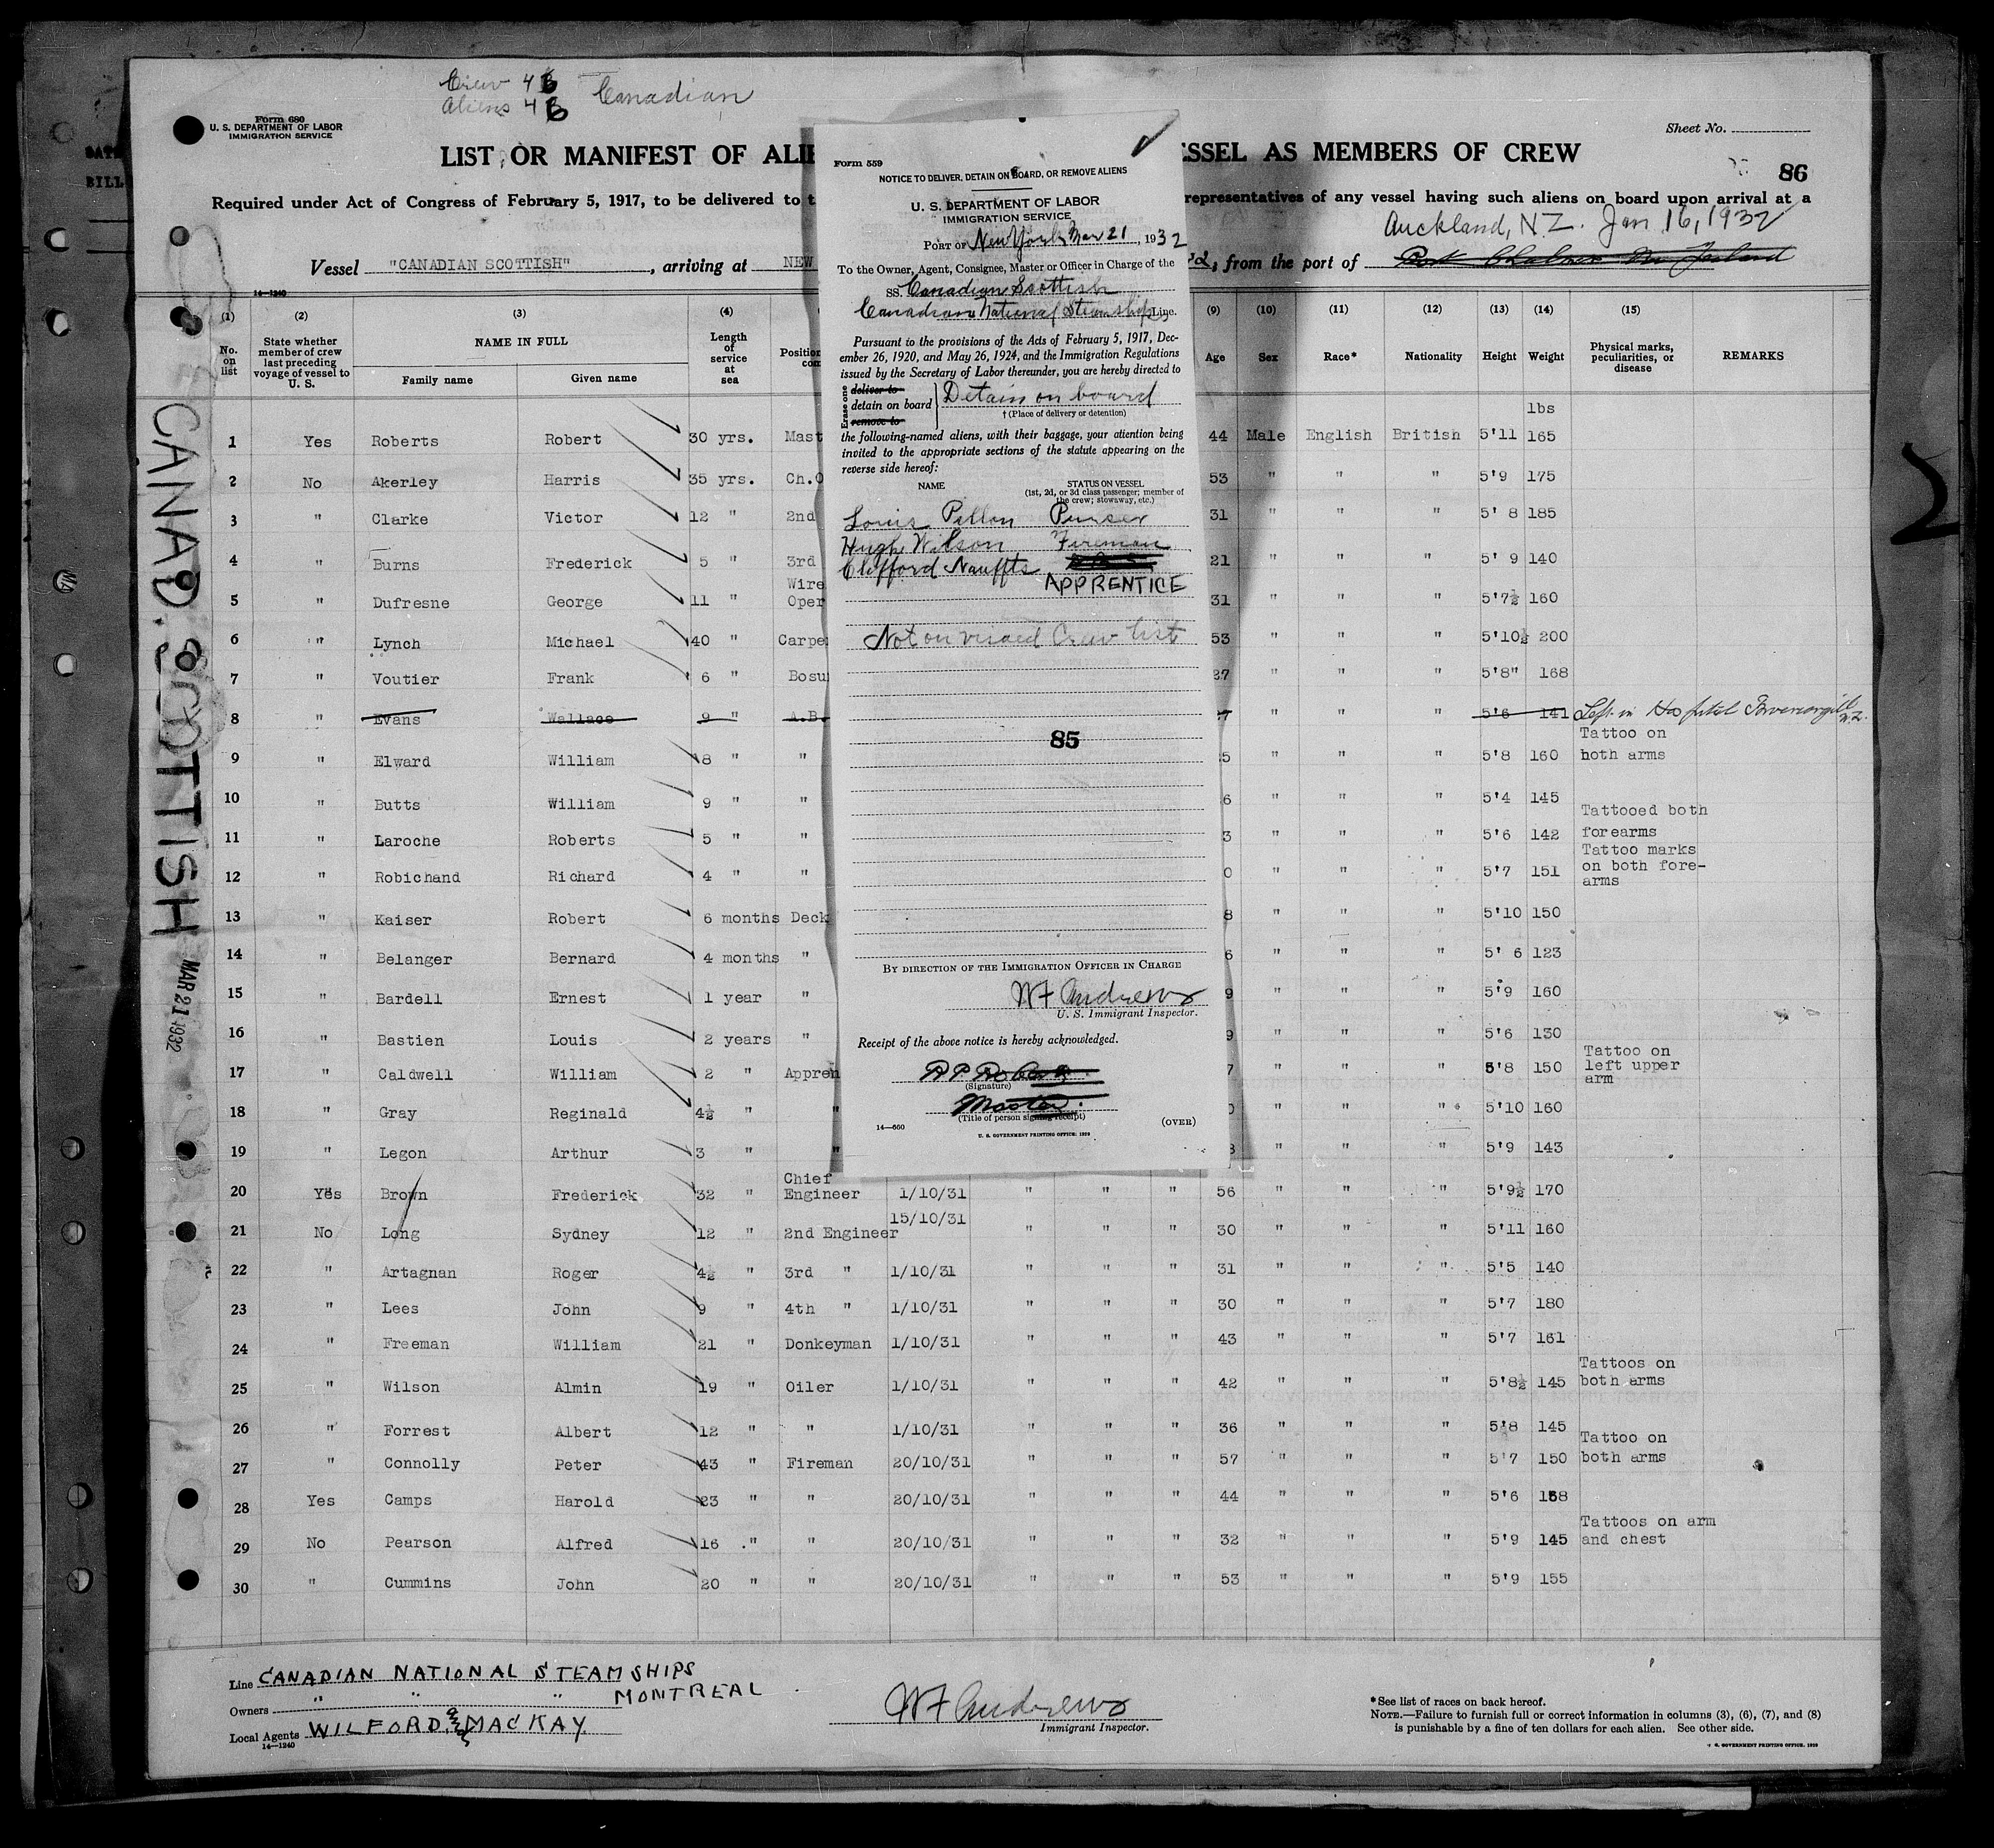 Crew 4
Aliens 4
Canadian
Form 680
U. S. DEPARTMENT OF LABOR
IMMIGRATION SERVICE
Sheet No.
LIST OR MANIFEST OF ALIE
ESSEL AS MEMBERS OF CREW
86
Required under Act of Congress of February 5, 1917, to be delivered to t
representatives of any vessel having such aliens on board upon arrival at a
Auckland, N.Z. Jan 16, 1932
Vessel "CANADIAN SCOTTISH", arriving at NEW
, from the port of
14-1240
(1) (2) (3) (4) (9) (10) (11) (12) (13) (14) (15)
No. on list
State whether member of crew last preceding voyage of vessel to U. S.
NAME IN FULL
Family name Given name
Length of service at sea
Position
com
Age Sex Race* Nationality Height Weight
Physical marks, peculiarities, or disease
REMARKS
lbs
1 Yes Roberts Robert 30 yrs. Mast 44 Male English British 5'11 165
2 No Akerley Harris 35 yrs. Ch.O 53 " " " 5'9 175
3 " Clarke Victor 12 " 2nd 31 " " " 5' 8 185
4 " Burns Frederick 5 " 3rd 21 " " " 5' 9 140
5 " Dufresne George 11 " Wire Oper 31 " " " 5'7½ 160
6 " Lynch Michael 40 " Carpe 53 " " " 5'10½ 200
7 " Voutier Frank 6 " Bosu 27 " " " 5'8" 168
8 " Evans Wallace 9 " A.B. 7 " " " 5'6 141 Left in Hospital Invercargill N.Z.
9 " Elward William 18 " " 5 " " " 5'8 160 Tattoo on both arms
10 " Butts William 9 " " 6 " " " 5'4 145
11 " Laroche Roberts 5 " " 3 " " " 5'6 142 Tattooed both forearms
12 " Robichand Richard 4 " " 0 " " " 5'7 151 Tattoo marks on both fore-arms
13 " Kaiser Robert 6 months Deck 8 " " " 5'10 150
14 " Belanger Bernard 4 months " 6 " " " 5' 6 123
15 " Bardell Ernest 1 year " 9 " " " 5'9 160
16 " Bastien Louis 2 years " 9 " " " 5'6 130
17 " Caldwell William 2 " Appren 7 " " " 5'8 150 Tattoo on left upper arm
18 " Gray Reginald 4½ " " 0 " " " 5'10 160
19 " Legon Arthur 3 " " 8 " " " 5'9 143
20 Yes Brown Frederick 32 " Chief Engineer 1/10/31 " " " 56 " " " 5'9½ 170
21 No Long Sydney 12 " 2nd Engineer 15/10/31 " " " 30 " " " 5'11 160
22 " Artagnan Roger 4½ " 3rd " 1/10/31 " " " 31 " " " 5'5 140
23 " Lees John 9 " 4th " 1/10/31 " " " 30 " " " 5'7 180
24 " Freeman William 21 " Donkeyman 1/10/31 " " " 43 " " " 5'7 161
25 " Wilson Almin 19 " Oiler 1/10/31 " " " 42 " " " 5'8½ 145 Tattoos on both arms
26 " Forrest Albert 12 " " 1/10/31 " " " 36 " " " 5'8 145
27 " Connolly Peter 43 " Fireman 20/10/31 " " " 57 " " " 5'7 150 Tattoo on both arms
28 Yes Camps Harold 23 " " 20/10/31 " " " 44 " " " 5'6 158
29 No Pearson Alfred 16 " " 20/10/31 " " " 32 " " " 5'9 145 Tattoos on arm and chest
30 " Cummins John 20 " " 20/10/31 " " " 53 " " " 5'9 155
Form 559
NOTICE TO DELIVER, DETAIN ON BOARD, OR REMOVE ALIENS
U. S. DEPARTMENT OF LABOR
IMMIGRATION SERVICE
PORT OF New York Mar 21, 1932
To the Owner, Agent, Consignee, Master or Officer in Charge of the
SS. Canadian Scottish
Canadian National Steamships Line.
Pursuant to the provisions of the Acts of February 5, 1917, Dec-
ember 26, 1920, and May 26, 1924, and the Immigration Regulations
issued by the Secretary of Labor thereunder, you are hereby directed to
Erase one
deliver to
detain on board
remove to
Detain on board
† (Place of delivery or detention)
the following-named aliens, with their baggage, your attention being
invited to the appropriate sections of the statute appearing on the
reverse side hereof:
NAME
STATUS ON VESSEL
(1st, 2d, or 3d class passenger; member of
the crew; stowaway, etc.)
Louis Pillon Purser
Hugh Wilson Fireman
Clifford Nauffts
APPRENTICE
Not on visaed Crew list
85
BY DIRECTION OF THE IMMIGRATION OFFICER IN CHARGE
W F Andrews
U. S. Immigrant Inspector.
Receipt of the above notice is hereby acknowledged.
(Signature)
Master
(Title of person signing receipt)
14—660
(OVER)
U. S. GOVERNMENT PRINTING OFFICE: 1929
CANAD. SCOTTISH
MAR 21 1932
Line CANADIAN NATIONAL STEAMSHIPS
Owners " " " MONTREAL
Local Agents WILFORD and MACKAY
14—1240
W F Andrews
Immigrant Inspector.
*See list of races on back hereof.
NOTE.—Failure to furnish full or correct information in columns (3), (6), (7), and (8)
is punishable by a fine of ten dollars for each alien. See other side.